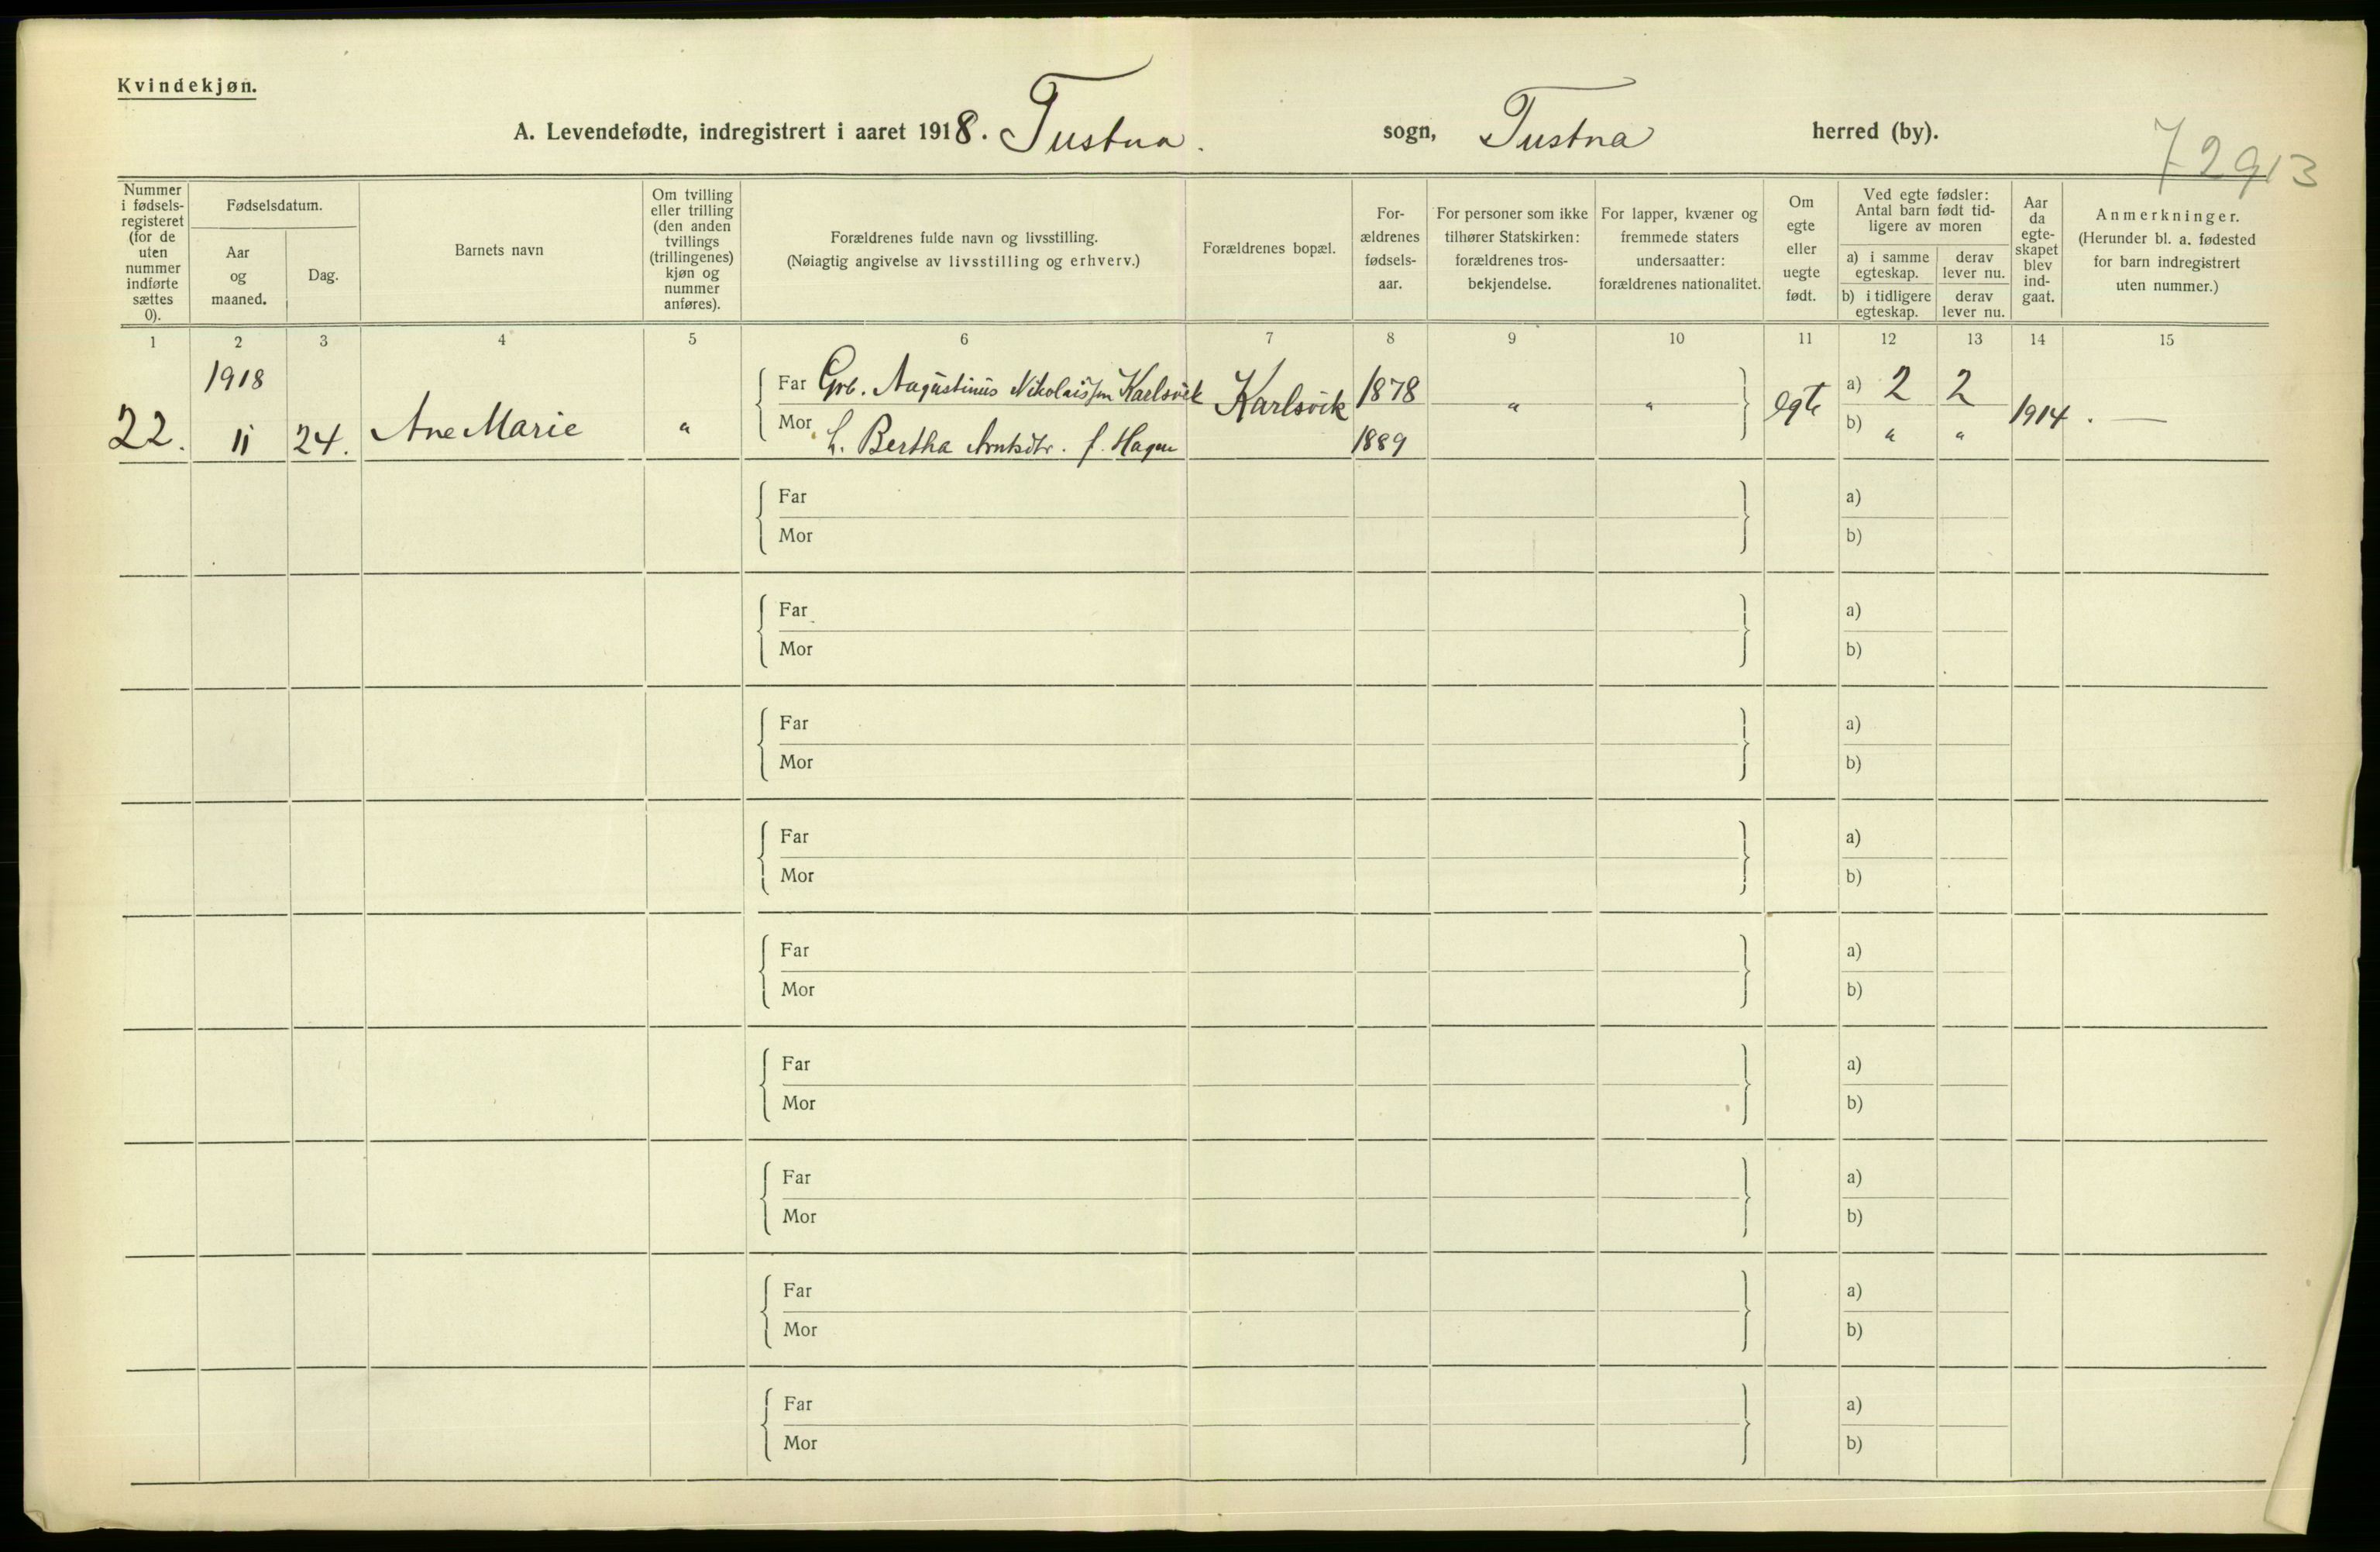 Kvindekjøn.
A. Levendefødte, indregistrert i aaret 1918. Tustna. sogn, Tustna herred (by).
72913
Nummer
i fødsels-
registeret
(for de
uten
nummer
indførte
sættes
0).
Fødselsdatum.
Aar
og
maaned.
Dag.
Barnets navn
Om tvilling
eller trilling
(den anden
tvillings
(trillingenes)
kjøn og
nummer
anføres).
Forældrenes fulde navn og livsstilling.
(Nøiagtig angivelse av livsstilling og erhverv.)
Forældrenes bopæl.
For-
ældrenes
fødsels-
aar.
For personer som ikke
tilhører Statskirken:
forældrenes tros-
bekjendelse.
For lapper, kvæner og
fremmede staters
undersaatter:
forældrenes nationalitet.
Om
egte
eller
uegte
født.
Ved egte fødsler:
Antal barn født tid-
ligere av moren
a) i samme
egteskap.
derav
lever nu.
b) i tidligere
egteskap.
derav
lever nu.
Aar
da
egte-
skapet
blev
ind-
gaat.
Anmerkninger.
(Herunder bl. a. fødested
for barn indregistrert
uten nummer.)
1 2 3 4 5 6 7 8 9 10 11 12 13 14 15
1918
Far Grb. Augustinus Nikolaissen Karlsvik Karlsvik 1878 " " egte a) 2 2 1914. —
22. 11 24. Ane Marie " Mor h. Bertha Arntsdtr. f. Hagen 1889 b) " "
Far a)
Mor b)
Far a)
Mor b)
Far a)
Mor b)
Far a)
Mor b)
Far a)
Mor b)
Far a)
Mor b)
Far a)
Mor b)
Far a)
Mor b)
Far a)
Mor b)